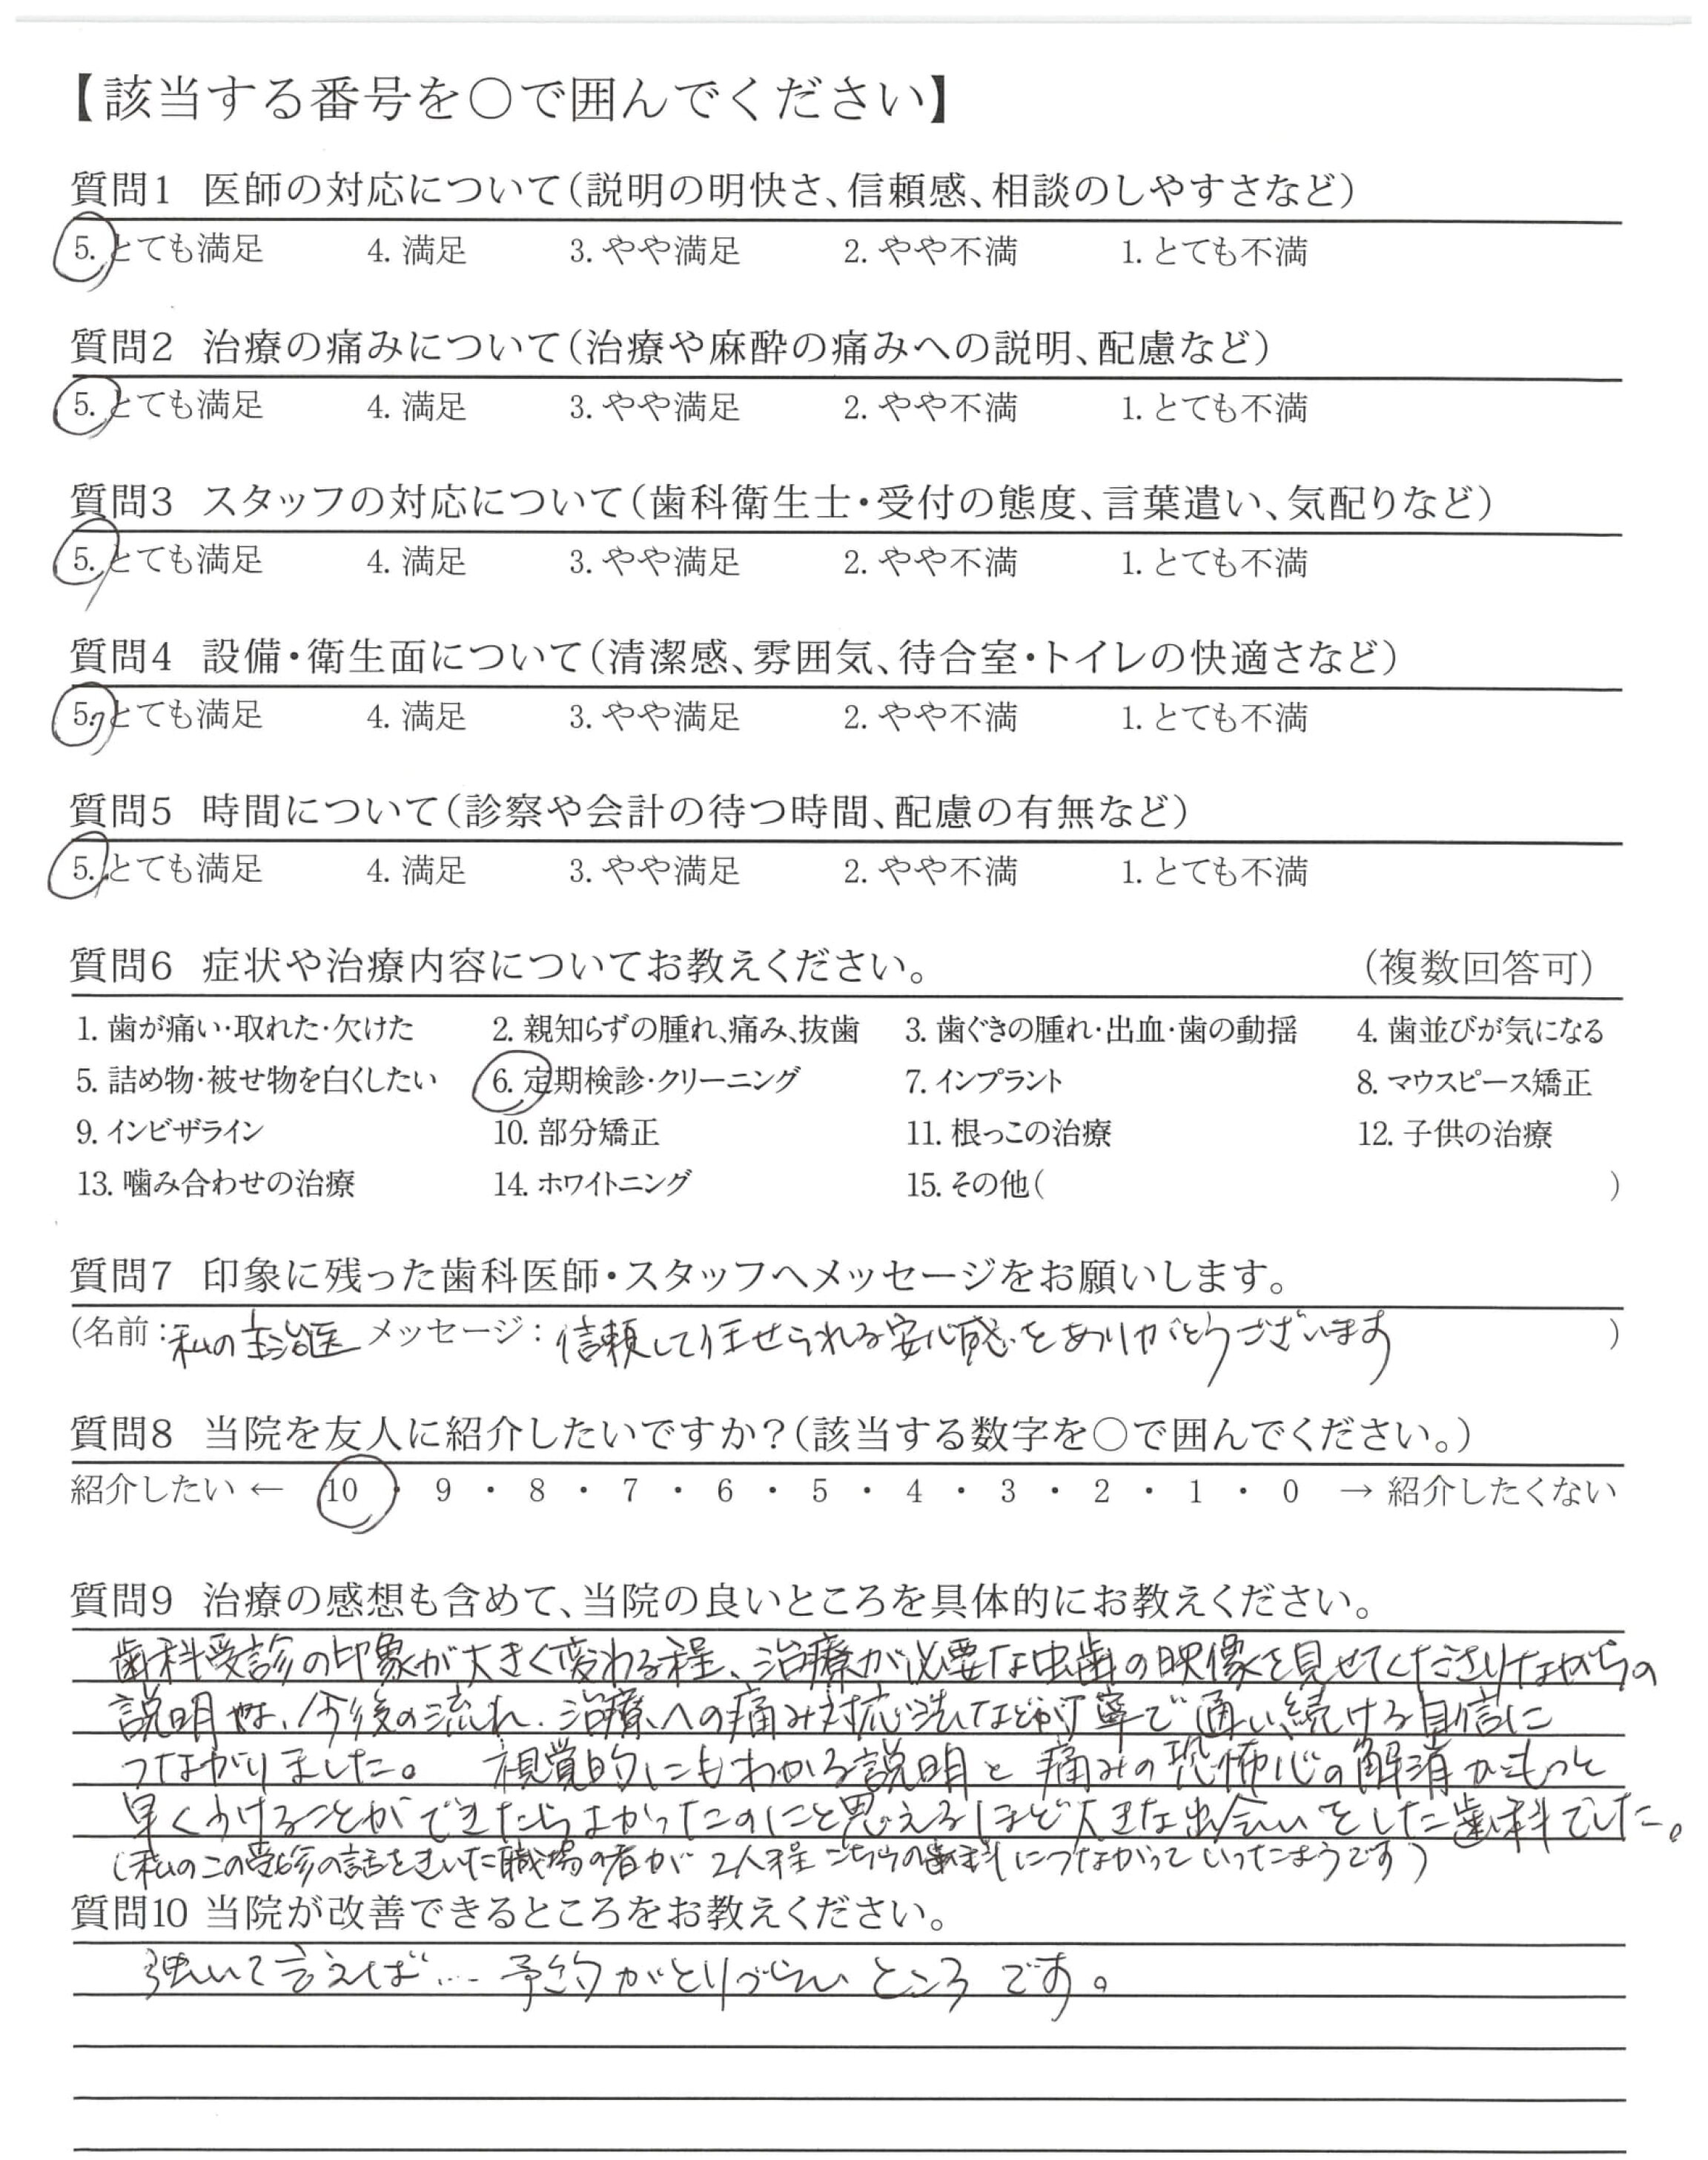 【該当する番号を○で囲んでください】
質問1 医師の対応について(説明の明快さ、信頼感、相談のしやすさなど)
5. とても満足 4. 満足 3. やや満足 2. やや不満 1. とても不満
質問2 治療の痛みについて(治療や麻酔の痛みへの説明、配慮など)
5. とても満足 4. 満足 3. やや満足 2. やや不満 1. とても不満
質問3 スタッフの対応について(歯科衛生士・受付の態度、言葉遣い、気配りなど)
5. とても満足 4. 満足 3. やや満足 2. やや不満 1. とても不満
質問4 設備・衛生面について(清潔感、雰囲気、待合室・トイレの快適さなど)
5. とても満足 4. 満足 3. やや満足 2. やや不満 1. とても不満
質問5 時間について(診察や会計の待つ時間、配慮の有無など)
5. とても満足 4. 満足 3. やや満足 2. やや不満 1. とても不満
質問6 症状や治療内容についてお教えください。 (複数回答可)
1. 歯が痛い・取れた・欠けた 2. 親知らずの腫れ、痛み、抜歯 3. 歯ぐきの腫れ・出血・歯の動揺 4. 歯並びが気になる
5. 詰め物・被せ物を白くしたい 6. 定期検診・クリーニング 7. インプラント 8. マウスピース矯正
9. インビザライン 10. 部分矯正 11. 根っこの治療 12. 子供の治療
13. 噛み合わせの治療 14. ホワイトニング 15. その他( )
質問7 印象に残った歯科医師・スタッフへメッセージをお願いします。
(名前:私の主治医 メッセージ:信頼して任せられる安心感をありがとうございます )
質問8 当院を友人に紹介したいですか?(該当する数字を○で囲んでください。)
紹介したい ← 10 ・ 9 ・ 8 ・ 7 ・ 6 ・ 5 ・ 4 ・ 3 ・ 2 ・ 1 ・ 0 → 紹介したくない
質問9 治療の感想も含めて、当院の良いところを具体的にお教えください。
歯科受診の印象が大きく変わる程、治療が必要な虫歯の映像を見せてくださりながらの
説明や、今後の流れ、治療への痛み対応法などが丁寧で通い続ける自信に
つながりました。 視覚的にもわかる説明と痛みの恐怖心の解消がもっと
早くうけることができたらよかったのにと思えるほど大きな出会いをした歯科でした。
(私のこの受診の話をきいた職場の者が2人程こちらの歯科につながっていったようです)
質問10 当院が改善できるところをお教えください。
強いて言えば… 予約がとりづらいところです。